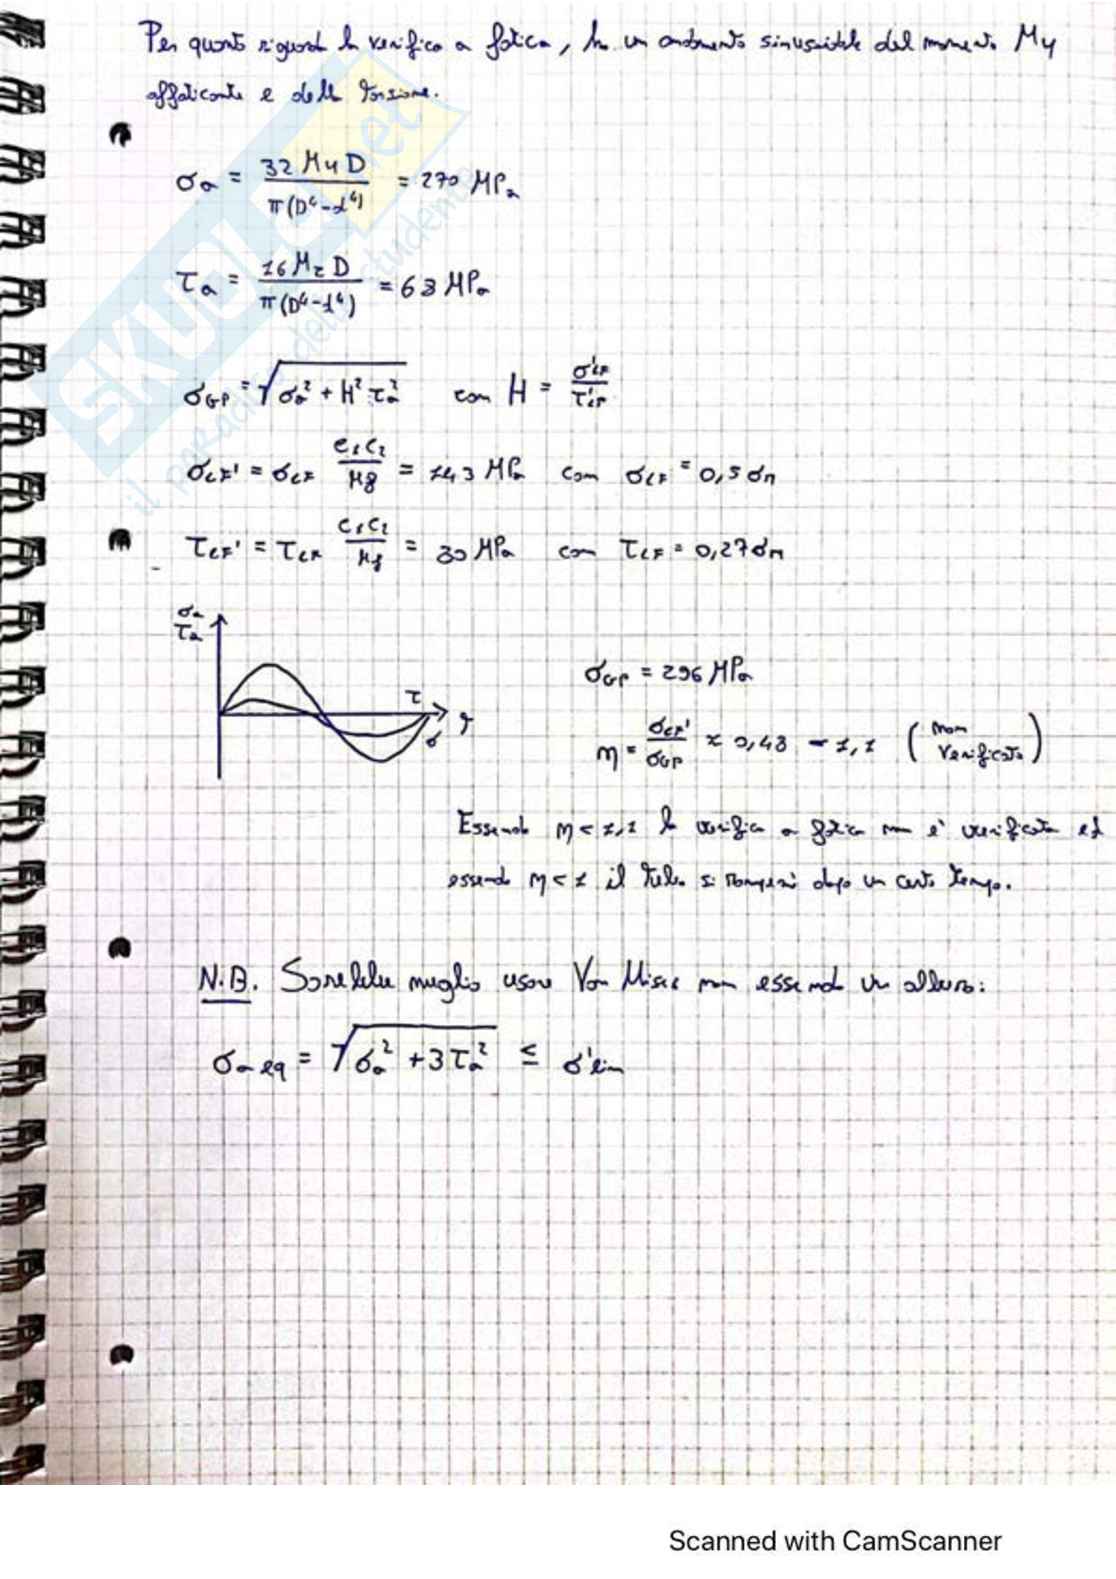 Per quanto riguarda la verifica a fatica, ho un andamento sinusoidale del momento My
affaticante e della torsione.
σa = 32 My D / π(D⁴-d⁴) = 270 MPa
τa = 16 Mz D / π(D⁴-d⁴) = 63 MPa
σGP = √(σa² + H² τa²) con H = σ'LF / τ'LF
σLF' = σLF C1C2 / Kf = 143 MPa con σLF = 0,5 σm
τLF' = τLF C1C2 / Kf = 80 MPa con τLF = 0,27 σm
σa
τa
τ
σ
σGP = 296 MPa
η = σLF' / σGP ≈ 0,48 - 1,1 (non verificata)
Essendo η < 1,1 la verifica a fatica non è verificata ed
essendo η < 1 il tubo si romperà dopo un certo tempo.
N.B. Sarebbe meglio usare Von Mises non essendo un albero:
σa eq = √(σa² + 3 τa²) ≤ σ'lim
SKUOLA.net
il paradiso dello studente
Scanned with CamScanner